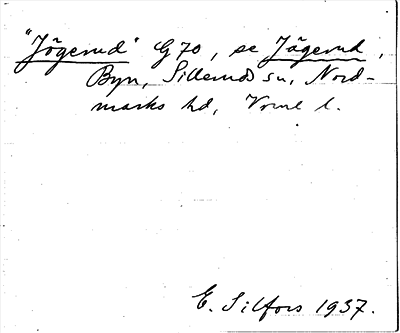 "Jögerud" G 70, se Jägerud,
Byn, Sillerud sn, Nord-
marks hd, Vrml l.
E. Silfors 1937.